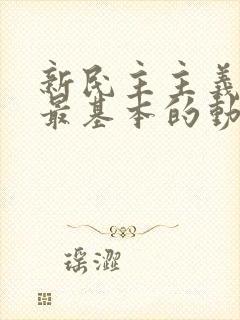 新民主主義
最基本的動
瑶澀